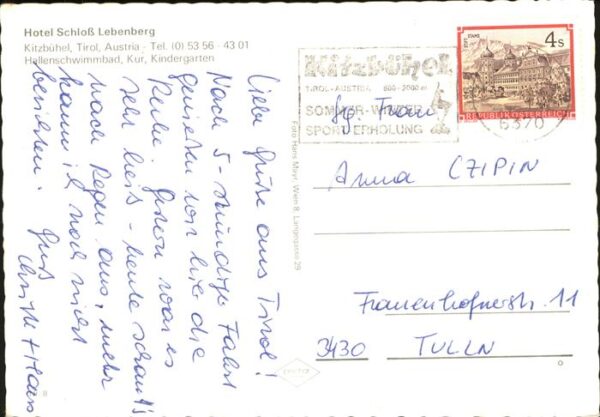 Hotel Schloß Lebenberg
Kitzbühel, Tirol, Austria · Tel. (0) 53 56 - 43 01
Hallenschwimmbad, Kur, Kindergarten
Liebe Grüße aus Tirol!
Nach 5-stündiger Fahrt
genießen wir hier die
Ruhe. Gestern war es
sehr heiß - heute schaut's
nach Regen aus, mehr
kann ich noch nicht
berichten.
Gruß
Christl + Hans
Foto Hans Mayr, Wien 8, Langegasse 29
Kitzbühel
TIROL-AUSTRIA 800-2000 m
SOMMER-WINTER
SPORT-ERHOLUNG
6370
STIFT STAMS
4 S
REPUBLIK ÖSTERREICH
Sg. Frau
Anna CZIPIN
Frauenhofnerstr. 11
3430 TULLN
8